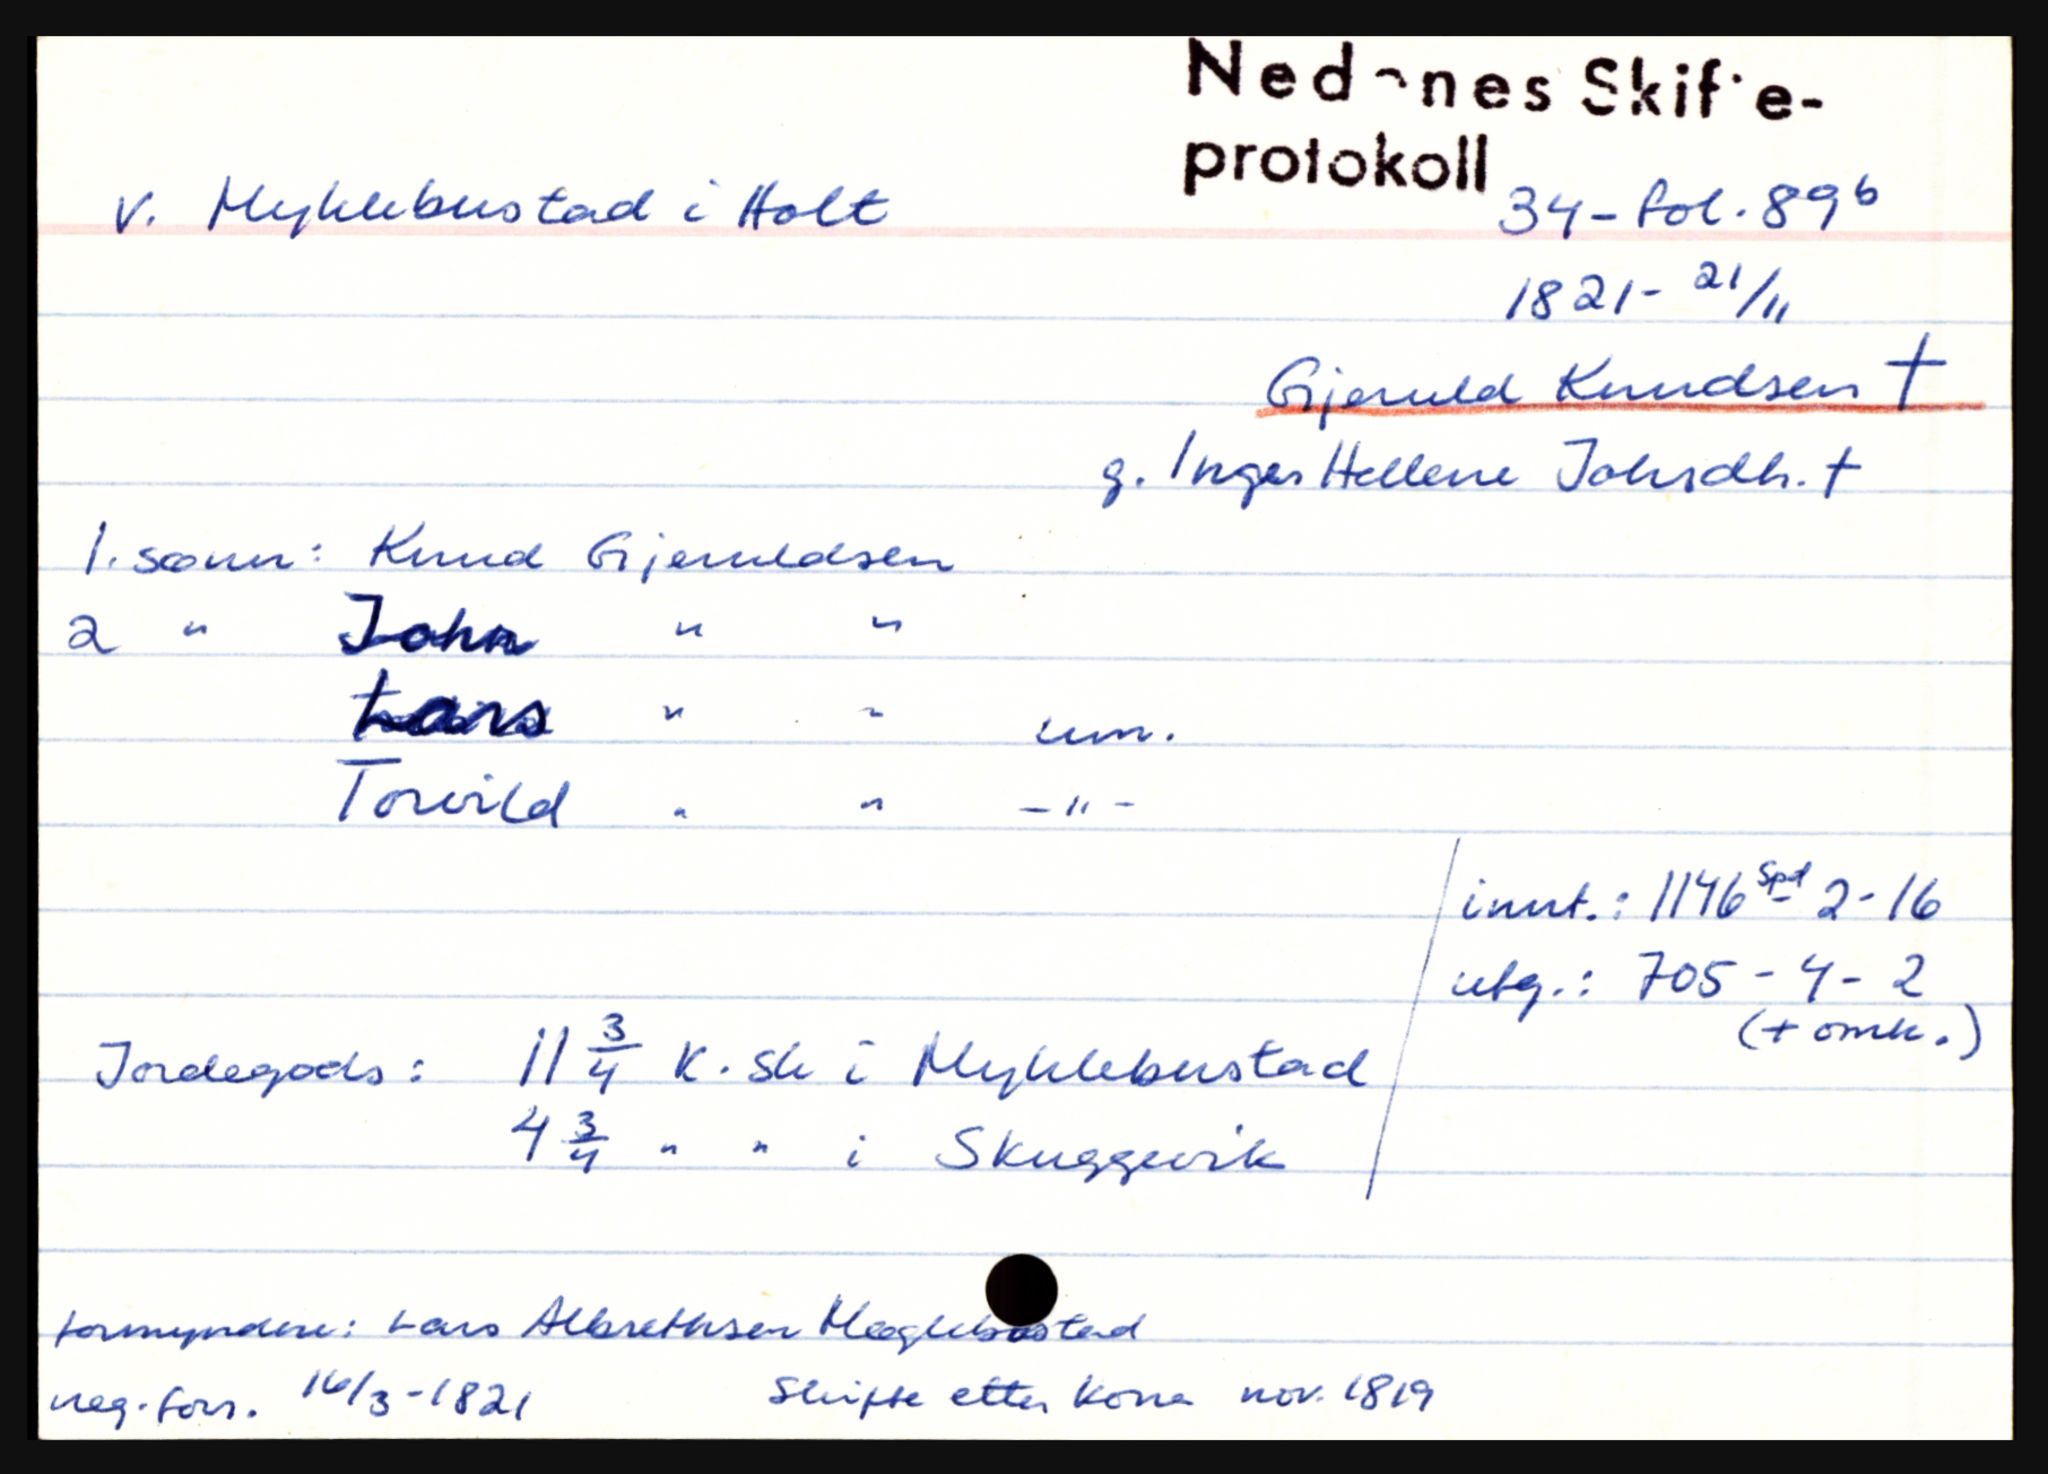 Nedenes Skifte-
protokoll
v. Myklebustad i Holt 34 - fol. 89b
1821 - 21/11
Gjeruld Knudsen †
g. Inger Hellene Johnsdh. †
1. sønn: Knud Gjeruldsen
2 " John " "
Lars " " um.
Torvild " " - " -
innt.: 1146 Spd 2 - 16
utg.: 705 - 4 - 2
(+ omk.)
Jordegods: 11 3/4 K. sk i Myklebustad
4 3/4 " " i Skuggevik
formyndere: Lars Albrethsen Møglebostad
reg. forr. 16/3 - 1821 Skifte etter kona nov. 1819